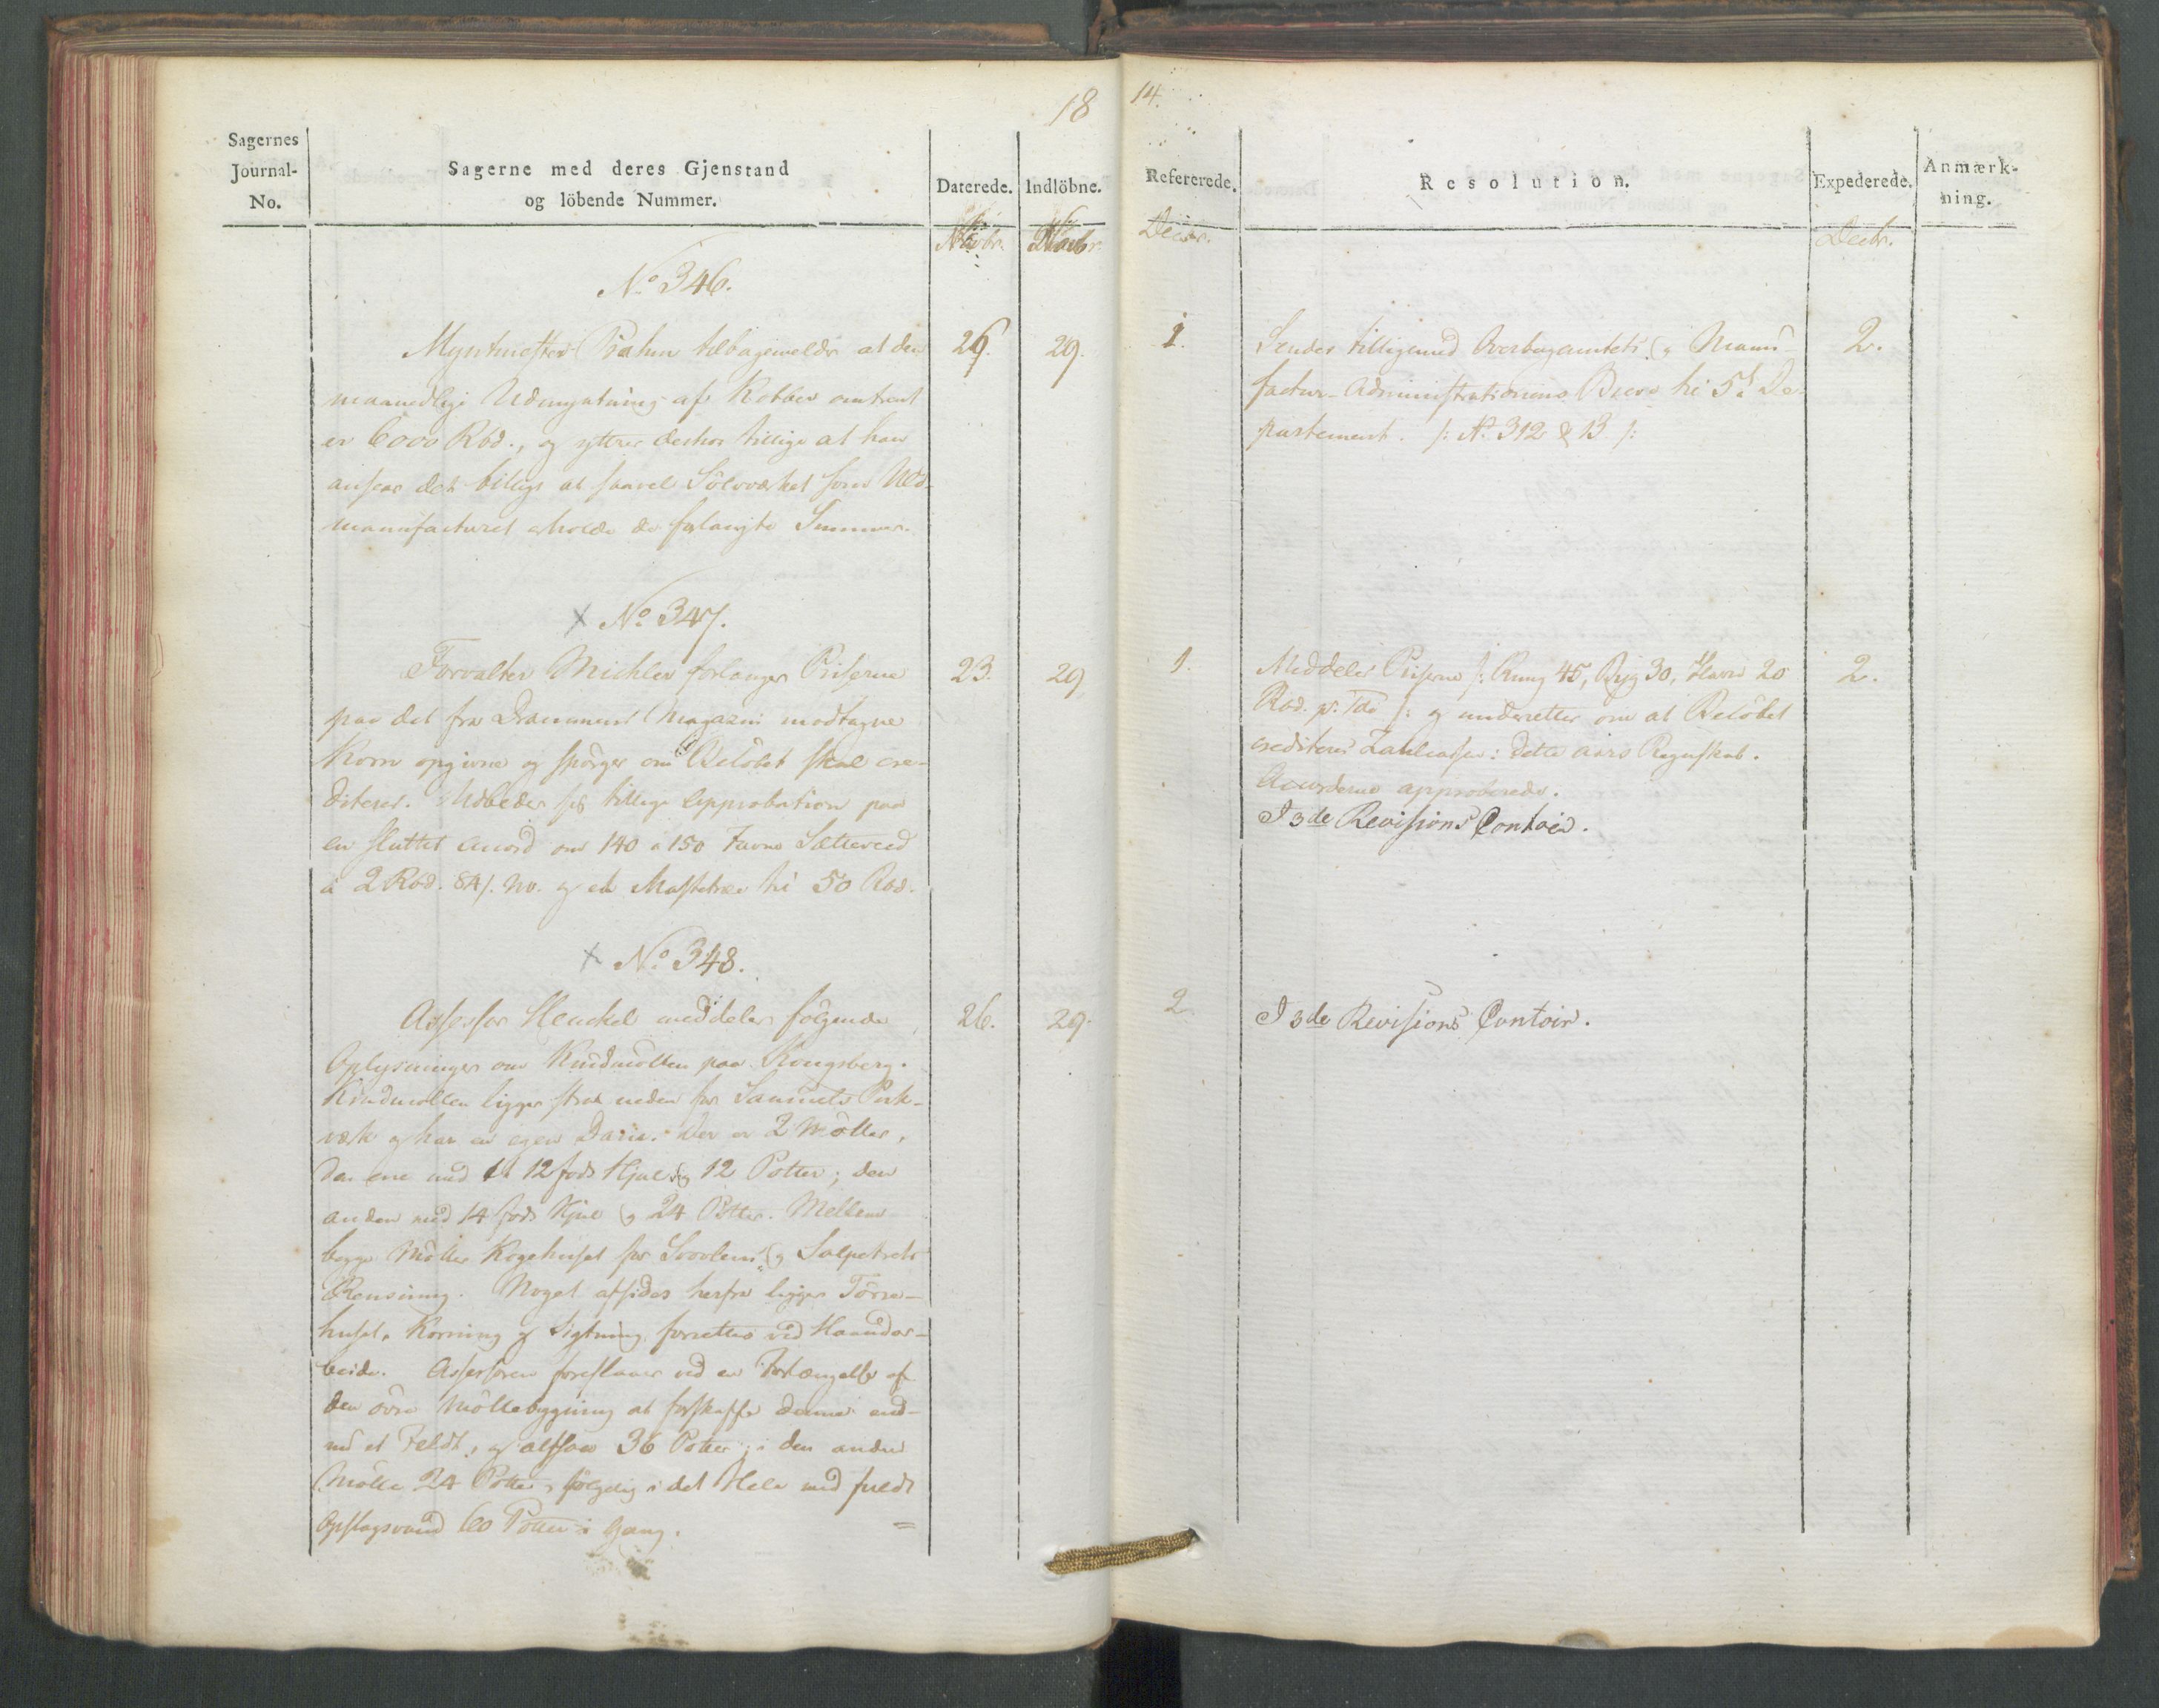 18
14.
Sagernes
Journal-
No.
Sagerne med deres Gjenstand
og löbende Nummer.
Daterede.
Indlöbne.
Refererede.
Resolution.
Expederede.
Anmærk-
ning.
Novbr.
Novbr.
Decbr.
Decbr.
No 346.
Myntmester Prahm tilbagemelder at den
maanedlige Udmyntning af Kobber omtrent
er 6000 Rbd., og yttrer derhos tillige at han
anseer det billigt at saavel Sölvværket som
manufacturet erholde de forlangte Summer.
26.
29.
1.
Sendes tilligemed Overbergamtets og Manu-
factur-Administrationens Breve til 5t De-
partement. /: No 312 & 13 :/
2.
× No 347.
Forvalter Michler forlanger Priserne
paa det fra Drammens Magazin modtagne
Korn opgivne og spörger om Belöbet skal cre-
diteres. Udbeder sig tillige Approbation paa
en sluttet Accord om 140 a 150 Favne Sætteveed
a 2 Rbd. 84 s. NV. og et Mastetræe til 50 Rbd.
23.
29.
1.
Meddeles Priserne /: Rug 45, Byg 30, Havre 20
Rbd. pr. Tde :/ og underrettes om at Belöbet
crediteres Zahlcassen i dette Aars Regnskab.
Accorderne approberede.
I 3de Revisions Contoir.
2.
× No 348.
Assessor Henckel meddeler fölgende
Oplysninger om Krudmöllen paa Kongsberg.
Krudmöllen ligger strax neden for Samuels Puk-
værk og har en egen Dam. Der er 2 Möller,
den ene med 12 fods Hjul og 12 Potter; den
anden med 14 fods Hjul og 24 Potter. Mellem
begge Möller Kogehuset for Svovlens og Salpeterets
Rensning. Noget afsides herfra ligger Törre-
huset. Korning og Sigtning forrettes ved Haandar-
beide. Assessoren foreslaaer ved en Forlængelse af
den övre Möllebygning at forskaffe denne end-
nu et Feldt, og altsaa 36 Potter; i den anden
Mölle 24 Potter, fölgelig i det Hele med fuldt
Opslagsvand 60 Potter i Gang.
26.
29.
2
I 3de Revisions Contoir.